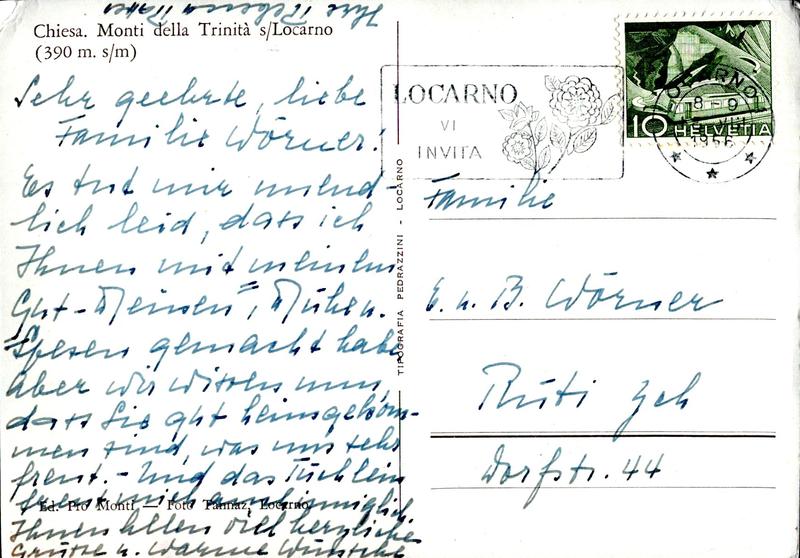 Ihre Rebecca
Chiesa. Monti della Trinità s/Locarno
(390 m. s/m)
Sehr geehrte, liebe
Familie Wörner!
Es tut mir unend-
lich leid, dass ich
Ihnen mit meinem
Gut-Meinen", Mühen.
Spesen gemacht habe
aber wir wissen nun,
dass Sie gut heimgekom-
men sind, was uns sehr
freut.- Und das Tüchlein
freut mich
Ed. Pro Monti — Foto Tannaz, Locarno
Ihnen allen viel herzliche
Grüsse u. warme Wünsche
TIPOGRAFIA PEDRAZZINI - LOCARNO
LOCARNO
VI
INVITA
LOCARNO
8-9
VIII
1956
10 HELVETIA
Familie
E. u. B. Wörner
Rüti Zch
Dorfstr. 44